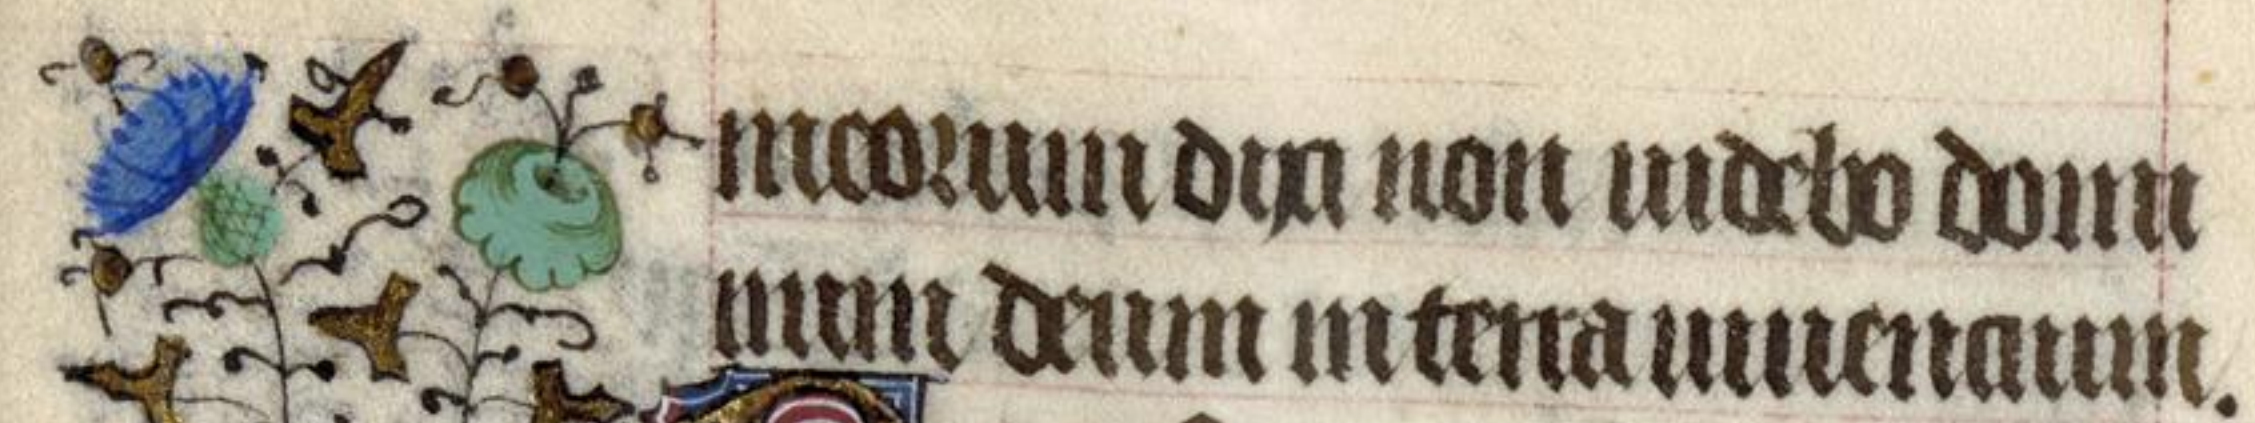 meorum dixi non uidebo domi
num deum in terra uiuencium.